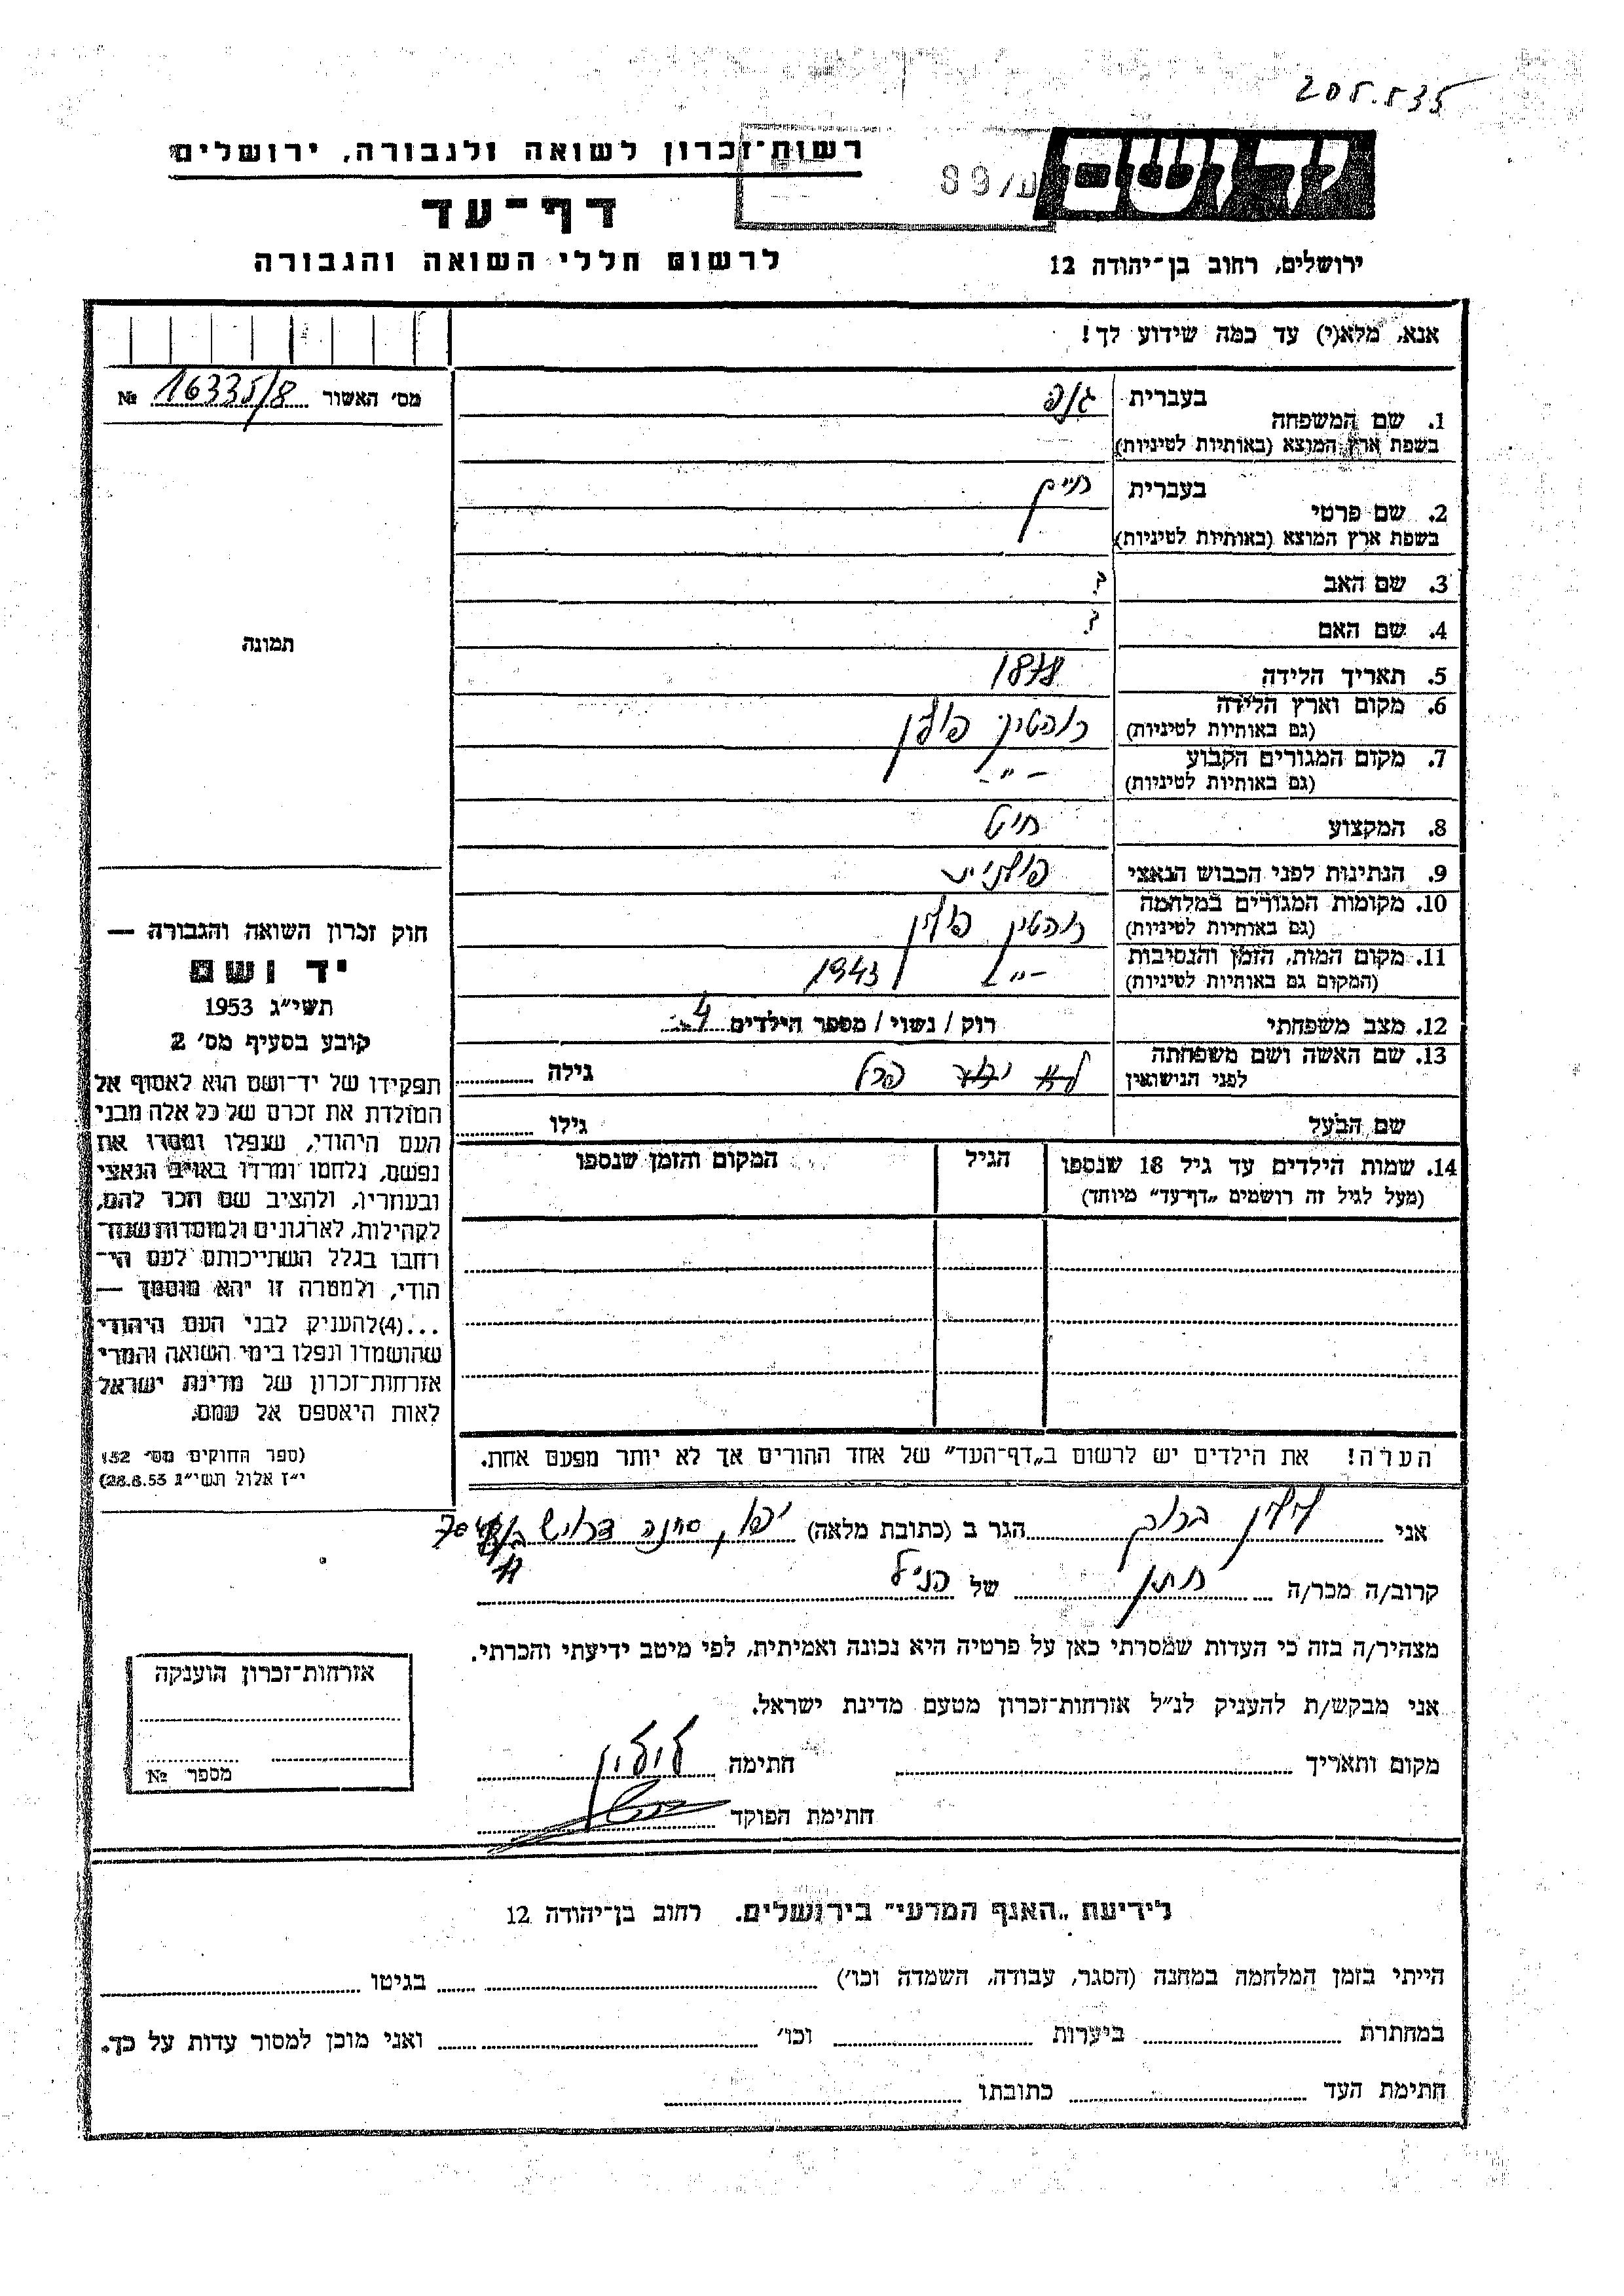 205.535
רשות־זכרון לשואה ולגבורה, ירושלים
יד ושם
89/ע
דף־עד
לרשום חללי השואה והגבורה
ירושלים, רחוב בן־יהודה 12
אנא, מלא(י) עד כמה שידוע לך!
מס׳ האשור 16335/8 №
תמונה
1. שם המשפחה בעברית
בשפת ארץ המוצא (באותיות לטיניות)
2. שם פרטי בעברית חיים
בשפת ארץ המוצא (באותיות לטיניות)
3. שם האב ?
4. שם האם ?
5. תאריך הלידה 1878
6. מקום וארץ הלידה רוהטין פולין
(גם באותיות לטיניות)
7. מקום המגורים הקבוע -"-
(גם באותיות לטיניות)
8. המקצוע חייט
9. הנתינות לפני הכבוש הנאצי פולנית
10. מקומות המגורים במלחמה רוהטין פולין
(גם באותיות לטיניות)
11. מקום המות, הזמן והנסיבות -"- 1943
(המקום גם באותיות לטיניות)
12. מצב משפחתי רוק / נשוי / מספר הילדים 4
13. שם האשה ושם משפחתה לפני הנישואין גילה
שם הבעל גילו
14. שמות הילדים עד גיל 18 שנספו הגיל המקום והזמן שנספו
(מעל לגיל זה רושמים „דף־עד” מיוחד)
הערה! את הילדים יש לרשום ב„דף־העד” של אחד ההורים אך לא יותר מפעם אחת.
חוק זכרון השואה והגבורה —
יד ושם
תשי״ג 1953
קובע בסעיף מס׳ 2
תפקידו של יד־ושם הוא לאסוף אל
המולדת את זכרם של כל אלה מבני
העם היהודי, שנפלו ומסרו את
נפשם, נלחמו ומרדו באויב הנאצי
ובעוזריו, ולהציב שם וזכר להם,
לקהילות, לארגונים ולמוסדות שנח־
רחבו בגלל השתייכותם לעם הי־
הודי, ולמטרה זו יהא מוסמך —
...(4)להעניק לבני העם היהודי
שהושמדו ונפלו בימי השואה והמרי
אזרחות־זכרון של מדינת ישראל
לאות היאספם אל עמם.
(ספר החוקים מס׳ 132
י״ז אלול תשי״ג 28.8.53)
אני ברוך הגר ב (כתובת מלאה) יפו,
קרוב/ה מכר/ה חתן של הנ״ל
מצהיר/ה בזה כי העדות שמסרתי כאן על פרטיה היא נכונה ואמיתית, לפי מיטב ידיעתי והכרתי.
אני מבקש/ת להעניק לנ״ל אזרחות־זכרון מטעם מדינת ישראל.
מקום ותאריך חתימה
חתימת הפוקד
אזרחות־זכרון הוענקה
מספר №
לידיעת „האגף המדעי” בירושלים. רחוב בן־יהודה 12
הייתי בזמן המלחמה במחנה (הסגר, עבודה, השמדה וכו׳) בגיטו
במחתרת ביערות וכו׳ ואני מוכן למסור עדות על כך.
חתימת העד כתובתו